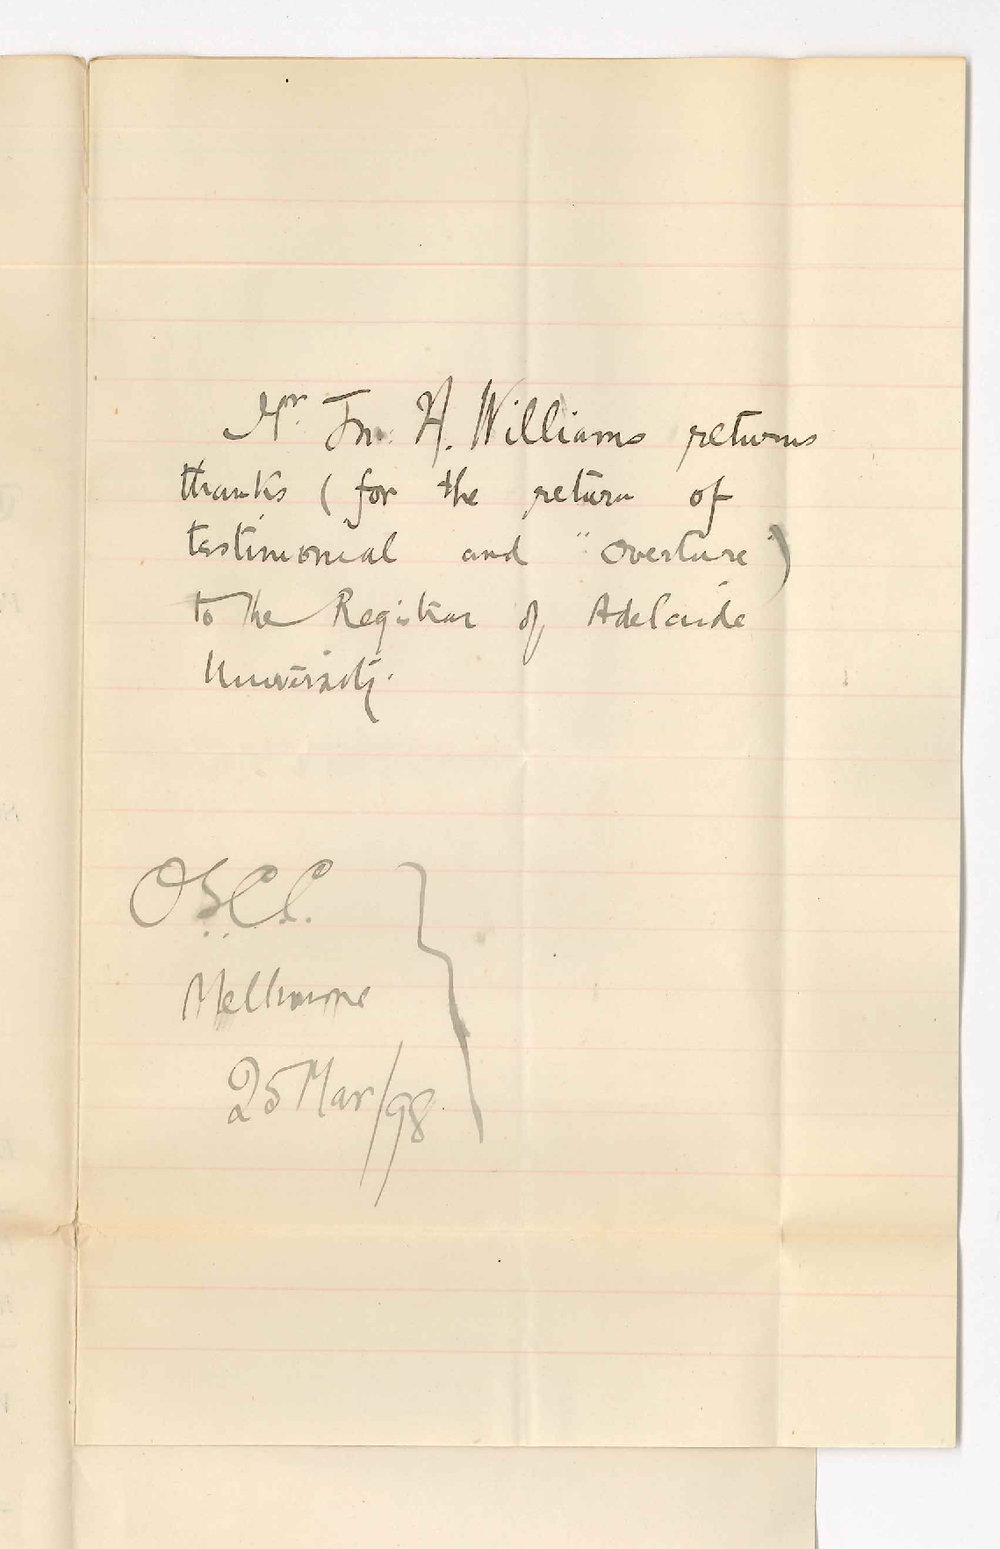 Mr. Jno. H. Williams returns
thanks (for the return of
testimonial and "overture")
to the Registrar of Adelaide
University.
Melbourne
25 Mar/98